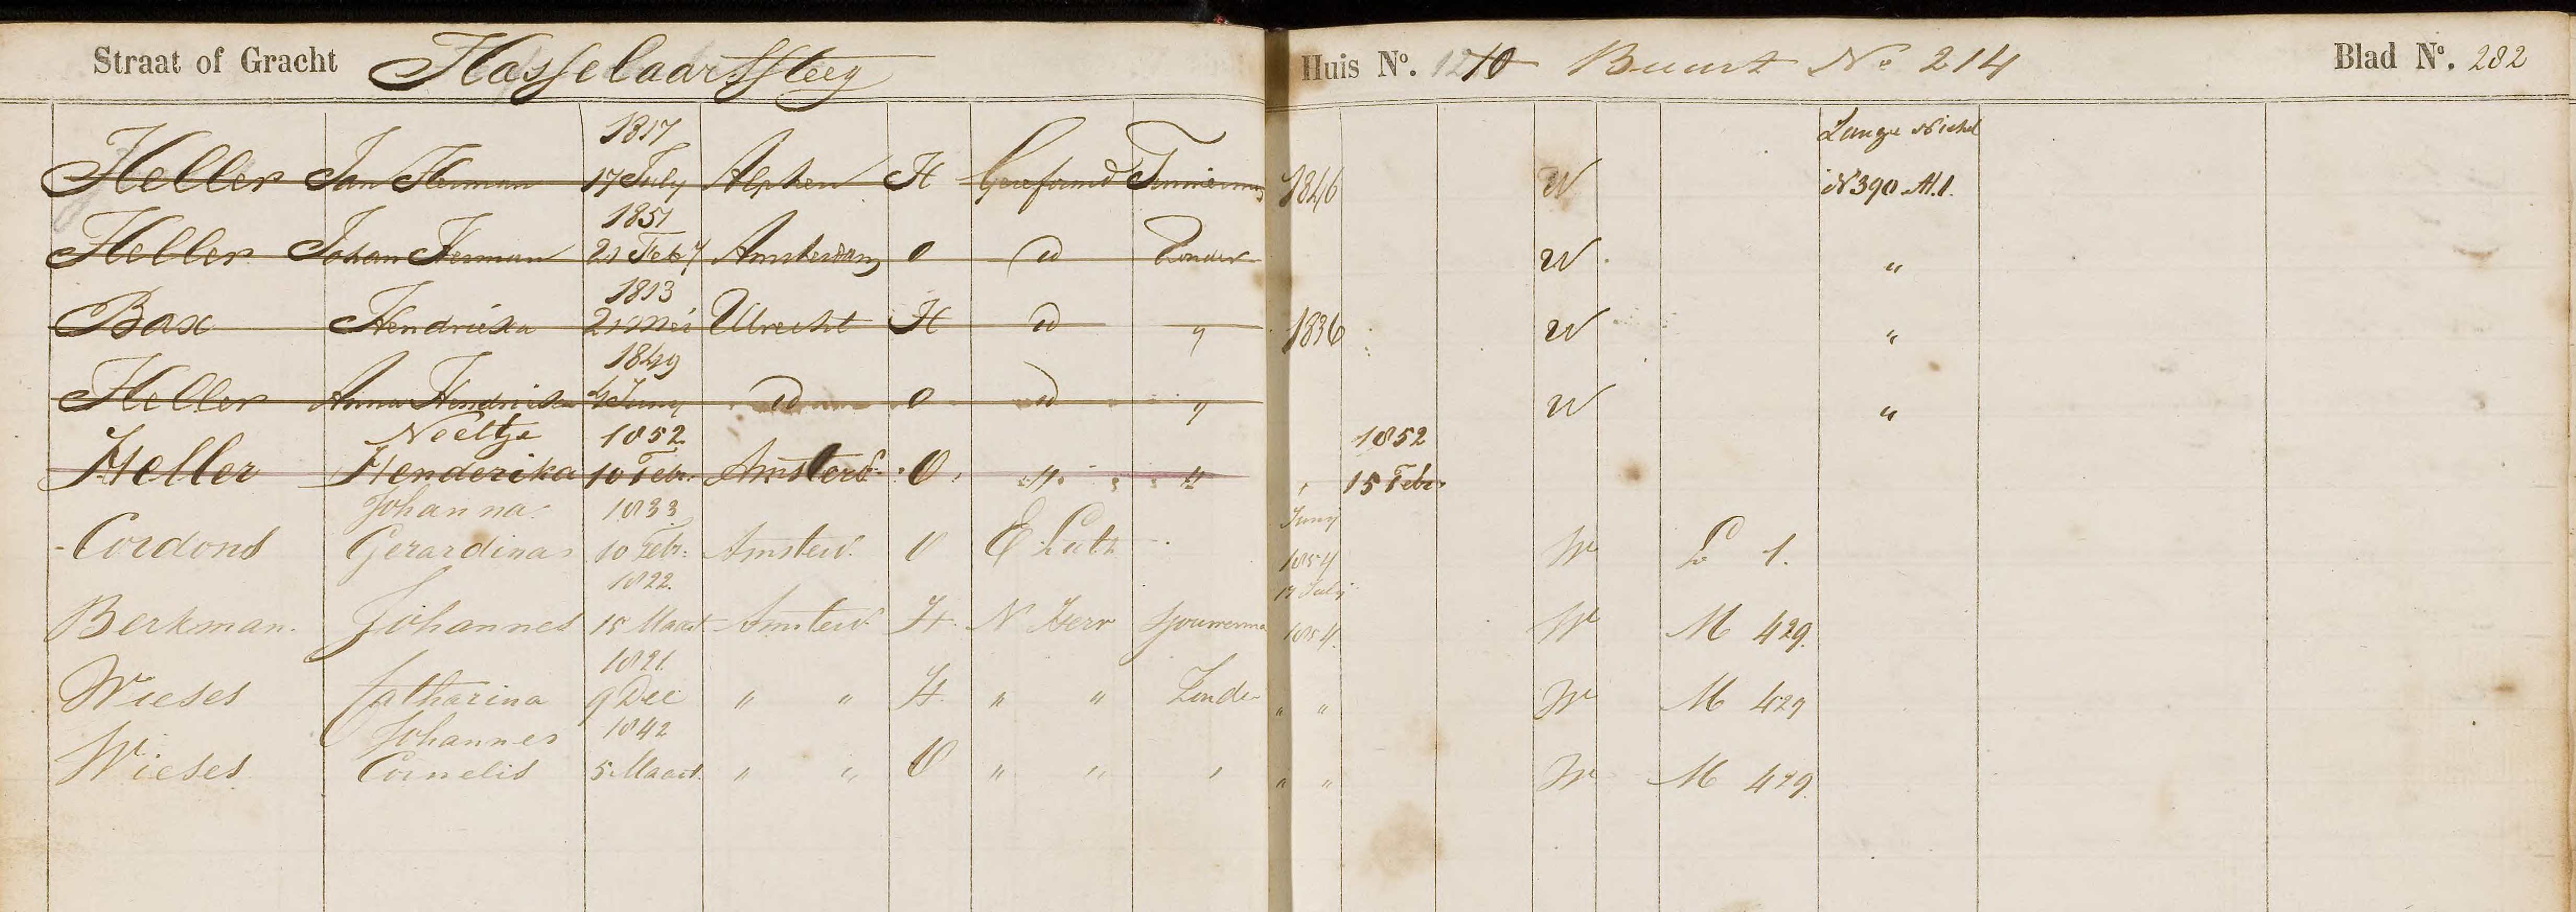 Straat of Gracht Hasselaarssteeg Huis No. 10 Buurt No 214 Blad No. 282
1817 Lange Niesel
Heller Jan Herman 17 July Alphen H Gereformd Timmerm 1846 W N 390 A.1.
1851
Heller Johan Herman 21 Feby Amsterdam O id Zonder W "
1813
Bax Hendrica 21 Mei Utrecht H id " 1836 W "
1849
Heller Anna Hendrica 4 Juny id O id " W "
Neeltje 1852 1852
Heller Henderika 10 Febr. Amsterd. O " " " 15 Febr
Johanna 1833 Juny
Cordons Gerardina 10 Febr. Amsterd. O E Luth 1854 W L 1.
1822 17 July
Berkman. Johannes 15 Maart Amsterd. H. N Herv Sjouwerma 1854. W M 429.
1821
Wieses Catharina 9 Dec " " H. " " Zonder " " W M 429
Johannes 1842
Wieses Cornelis 5 Maart. " " O " " " " " W M 429.